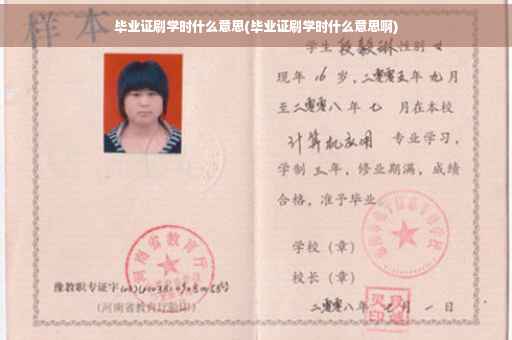 毕业证刷学时什么意思(毕业证刷学时什么意思啊)
样本
学生段毅琳性别女
现年16岁，二零零五年九月
至二零零八年七月在本校
计算机应用专业学习，
学制三年，修业期满，成绩
合格，准予毕业。
学校（章）
校长（章）
二零零八年七月一日
河南省教育厅
豫教职专证字
(河南省教育厅验印)